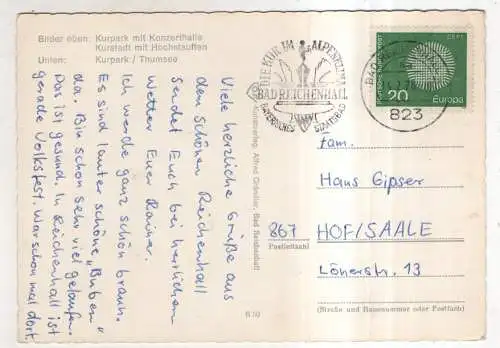 Bilder oben: Kurpark mit Konzerthalle
Kurstadt mit Hochstaufen
Unten: Kurpark / Thumsee
Viele herzliche Grüße aus
dem schönen Reichenhall
sendet Euch bei herrlichem
Wetter Euer Rainer.
Ich werde ganz schön braun.
Es sind lauter schöne "Buben"
da. Bin schon sehr viel gelaufen.
Das ist gesund. In Reichenhall ist
gerade Volksfest. War schon mal dort.
Kunstverlag, Alfred Gründler, Bad Reichenhall
DIE KUR IM ALPENKLIMA
BAD REICHENHALL
BAYERISCHES STAATSBAD
BAD
823
CEPT
DEUTSCHE BUNDESPOST
20 Europa
Fam.
Hans Gipser
867 HOF/SAALE
Postleitzahl
Lönsstr. 13
(Straße und Hausnummer oder Postfach)